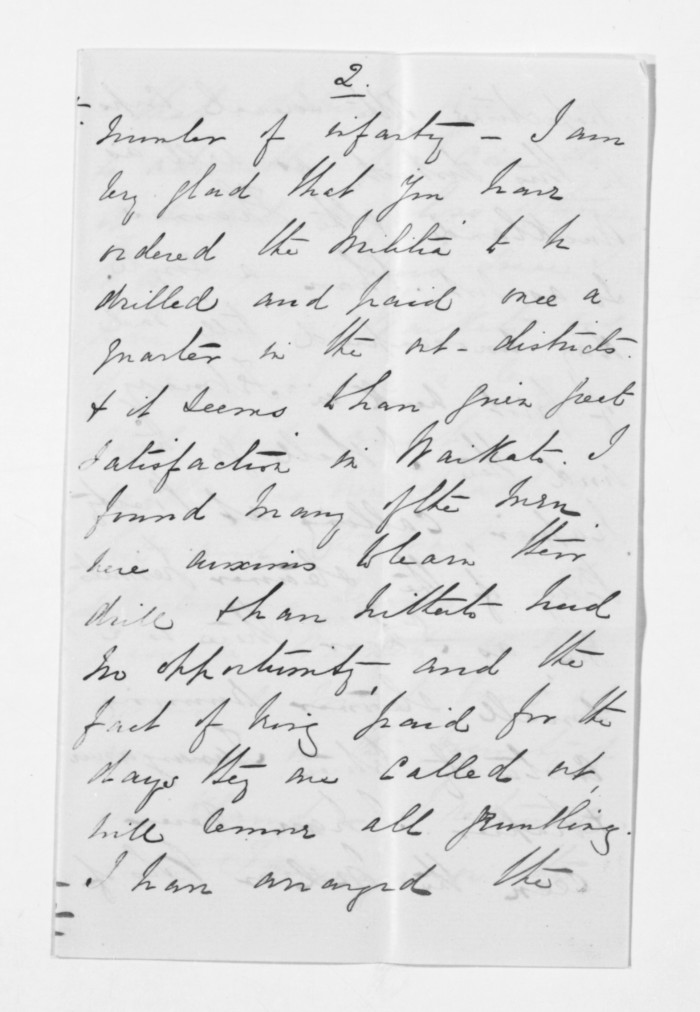 2.
number of infantry - I am
very glad that you have
ordered the Militia to be
drilled and paid once a
quarter in the out-districts.
& it seems to have given great
satisfaction in Waikato. I
found many of the men
here anxious to learn their
drill & have hitherto had
no opportunity, and the
fact of being paid for the
days they are called out,
will remove all grumbling.
I have arranged the